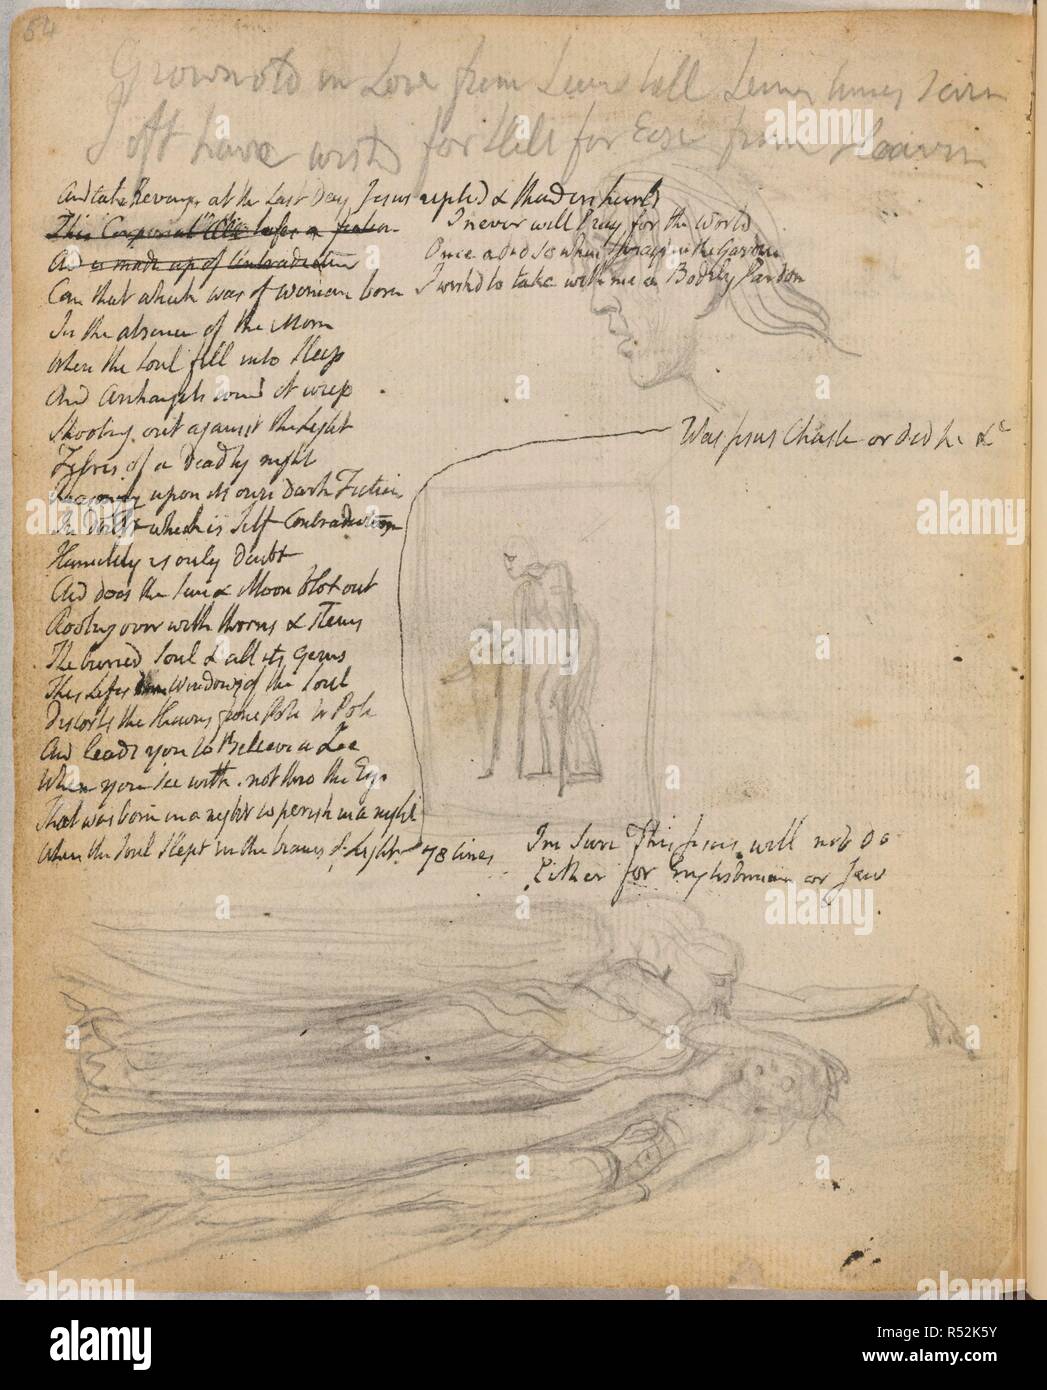 54
Grown old in Love from Seven till Seven times Seven
I oft have wishd for Hell for Ease from Heaven
And take Revenge at the Last Day Jesus replied & thunders hurld
This Corporeal life's a fiction
I never will Pray for the World
And is made up of Contradiction
Once I did so when I prayd in the Garden
Can that which was of Woman born I wishd to take with me a Bodily Pardon
In the absence of the Morn
When the Soul fell into Sleep
And Archangels round it weep
Shooting out against the Light
Fibres of a Deadly night
Reasoning upon its own Dark Fiction
In Doubt which is Self Contradiction
Humility is only Doubt
And does the Sun & Moon blot out
Rooting over with thorns & stems
The buried Soul & all its Gems
This Lifes Windows of the Soul
Distorts the Heavens from Pole to Pole
And leads you to Believe a Lie
When you see with not thro the Eye
That was born in a night to perish in a night
When the Soul Slept in the beams of Light 78 lines
Was Jesus Chaste or did he &c
Im Sure This Jesus will not do
Either for Englishman or Jew
alamy
Image ID: R52K5Y
www.alamy.com